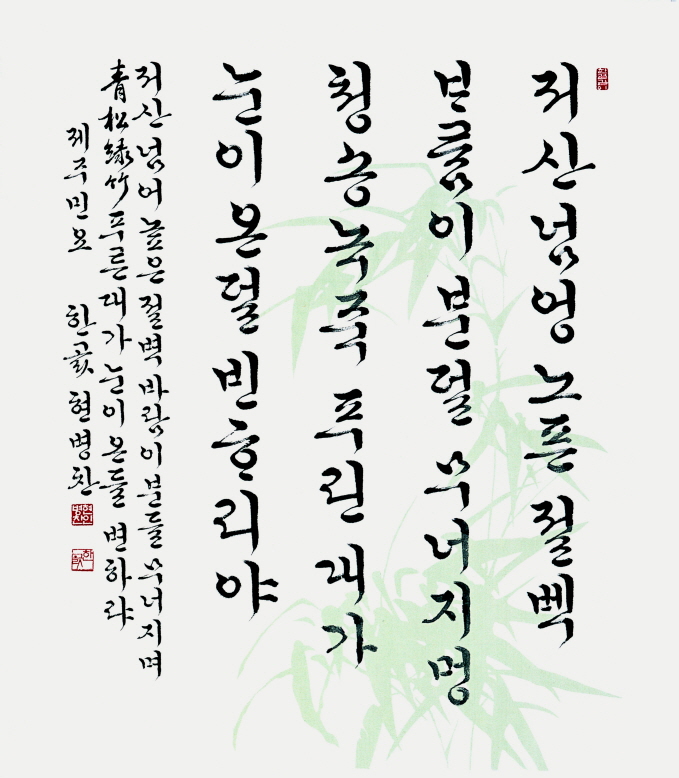 저 산 넘엉 노픈 절벡
ᄇᆞᄅᆞᆷ이 분덜 무너지멍
청송녹죽 푸린 대가
눈이 온덜 빈ᄒᆞ리야
저 산 넘어 높은 절벽 바람이 분들 무너지며
靑松綠竹 푸른 대가 눈이 온들 변하랴
제주민요 한곬 현병찬